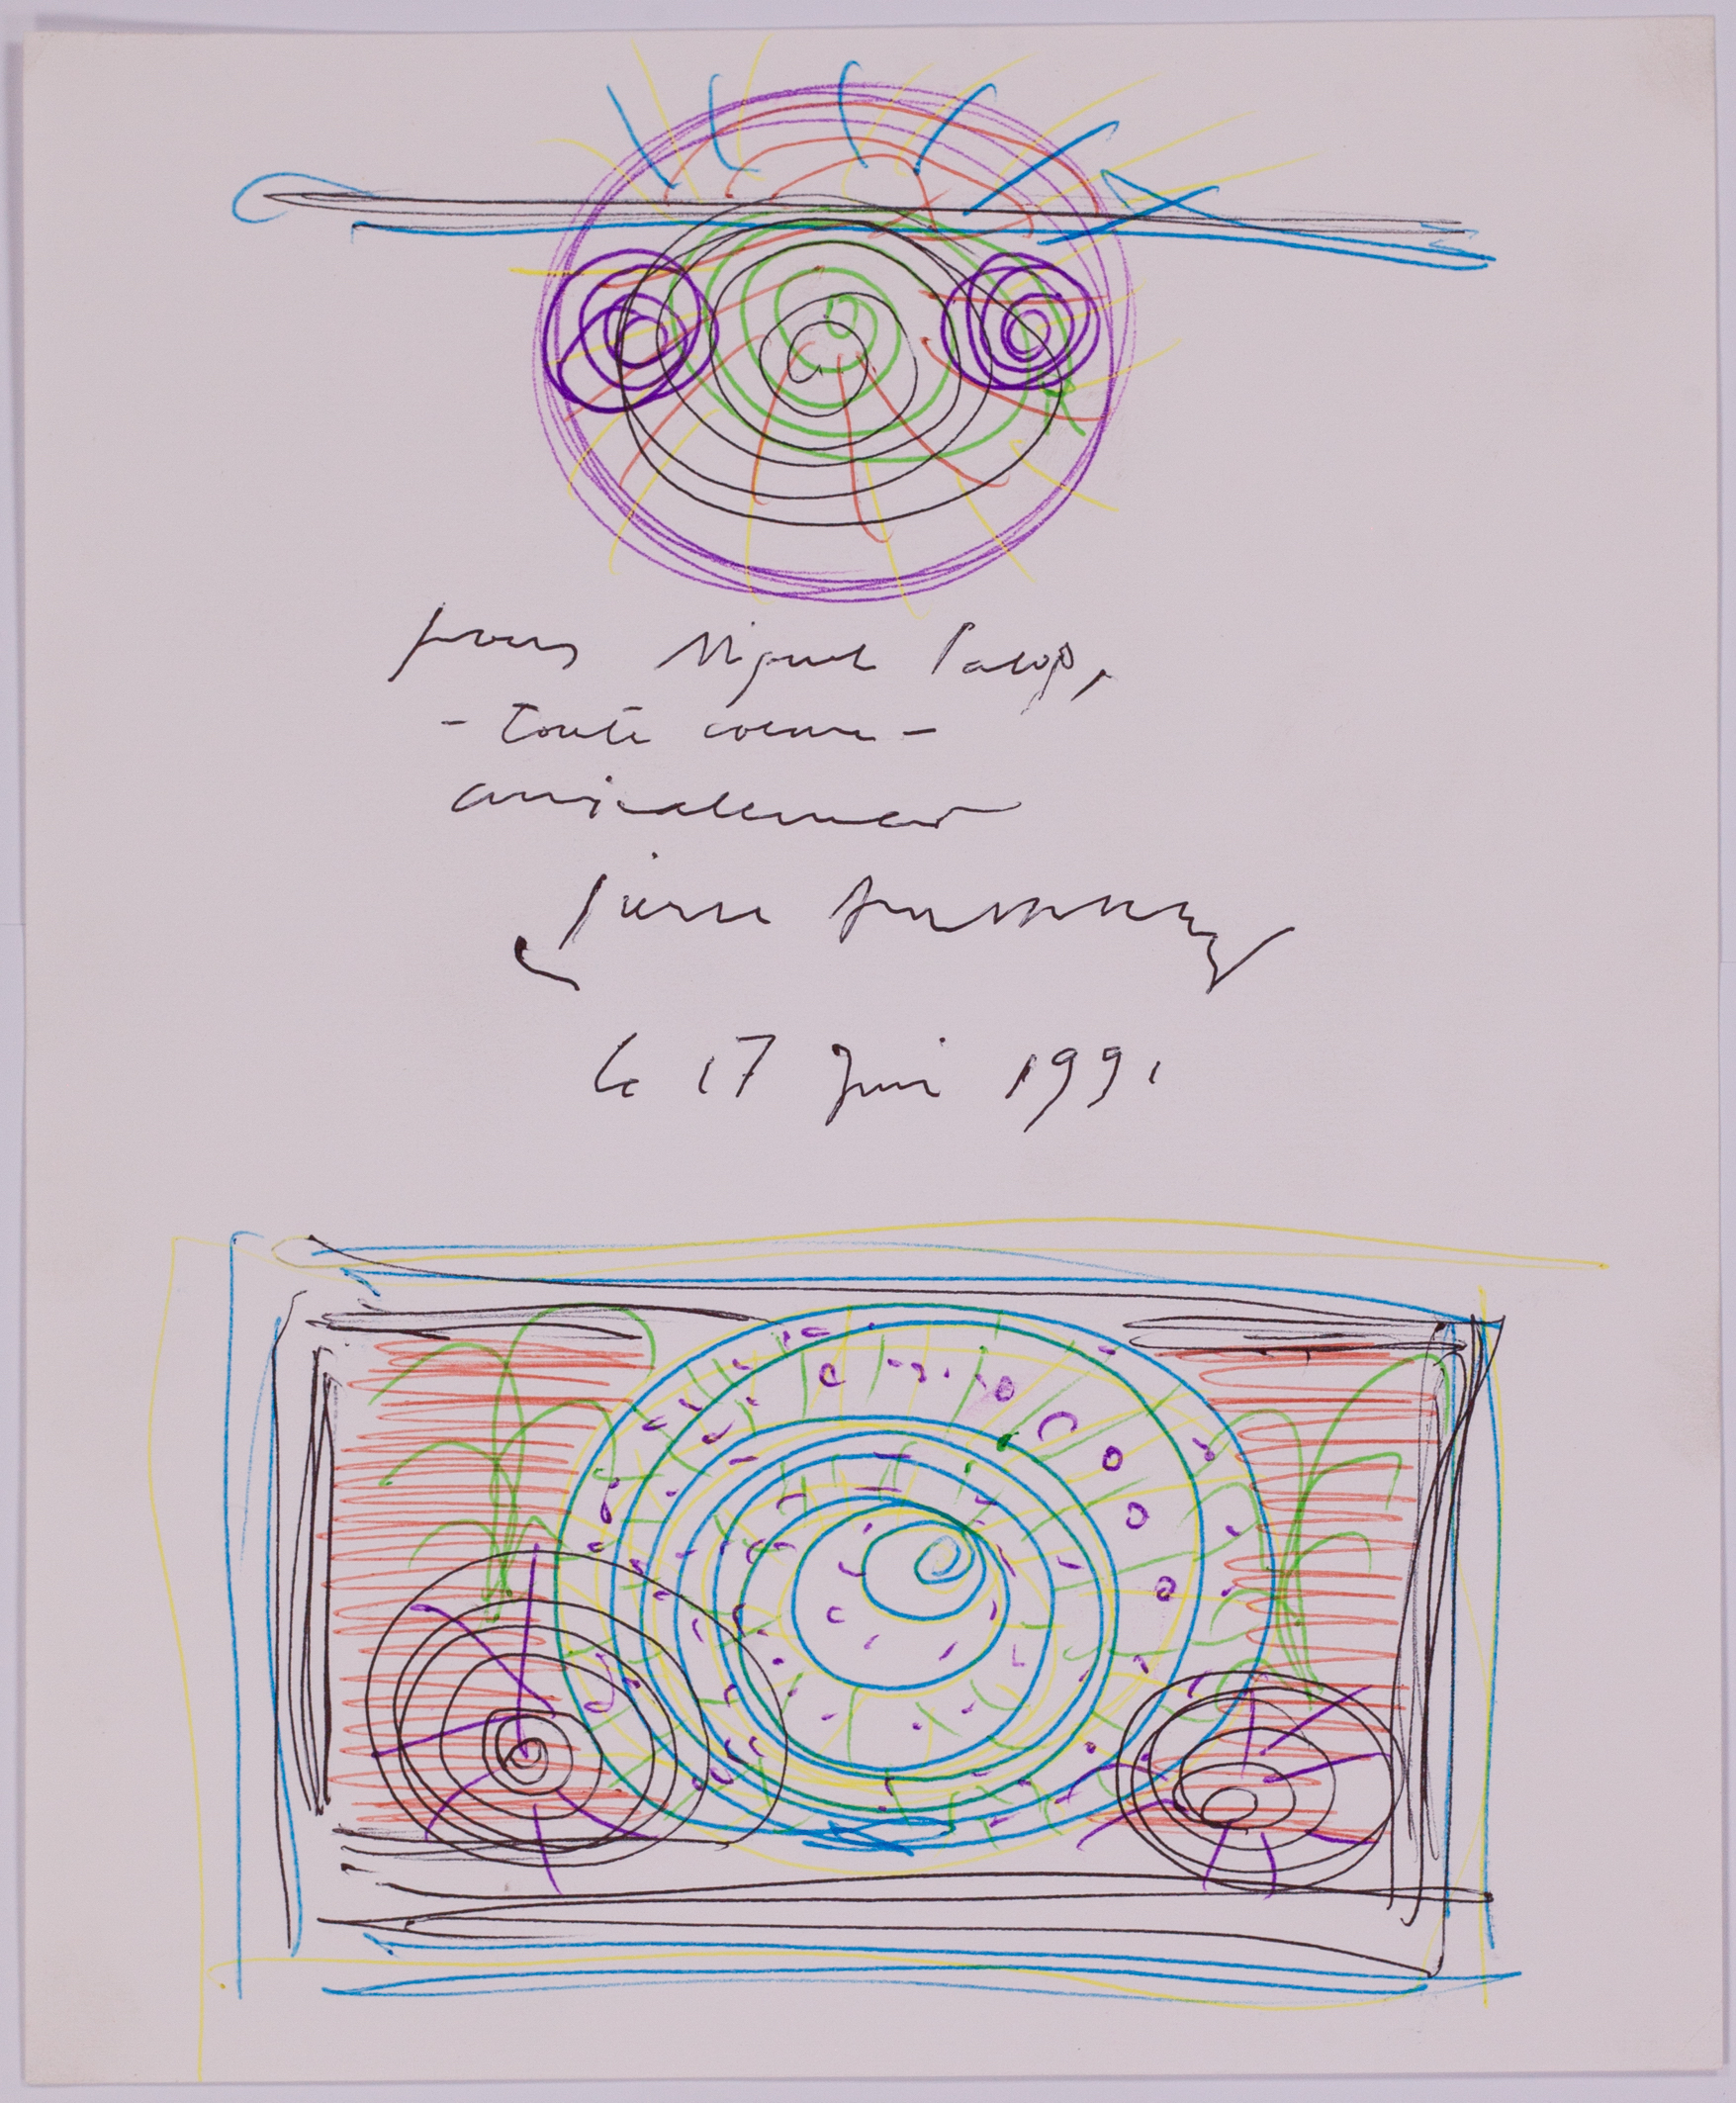 pour Miguel Palop,
- toute
amicalement
Pierre
le 17 Juin 1991